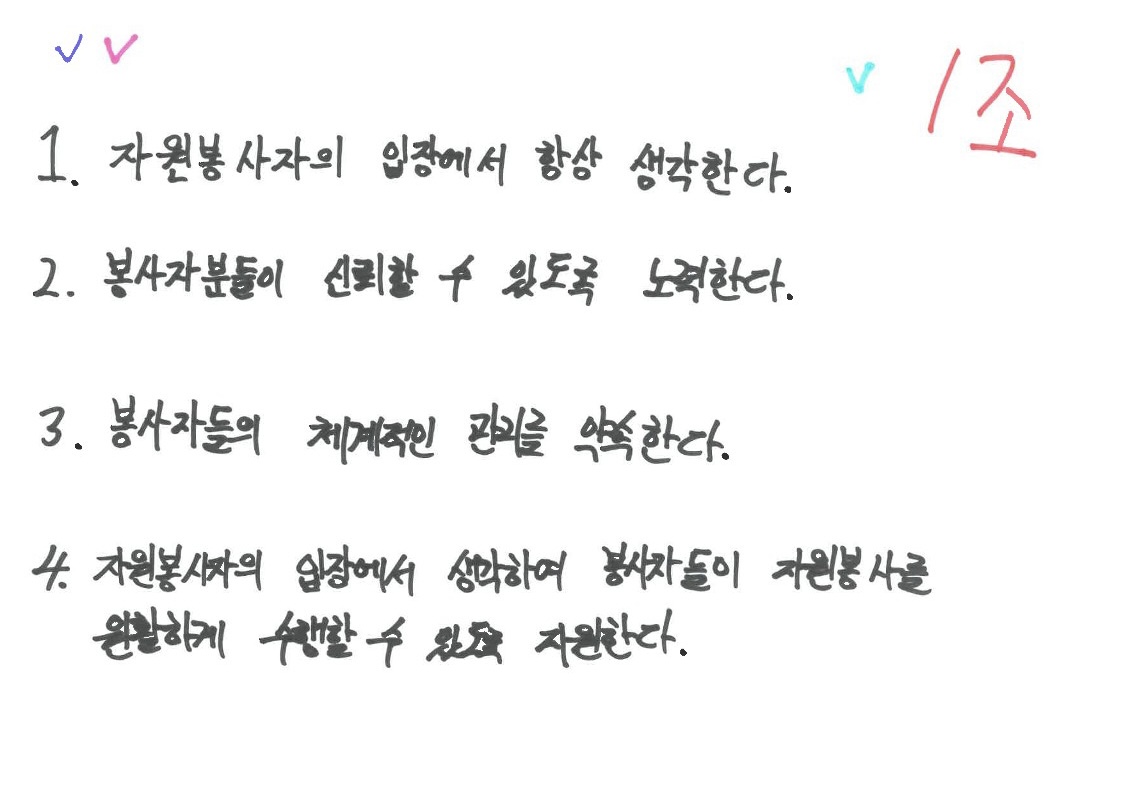 1조
1. 자원봉사자의 입장에서 항상 생각한다.
2. 봉사자분들이 신뢰할 수 있도록 노력한다.
3. 봉사자들의 체계적인 관리를 약속한다.
4. 자원봉사자의 입장에서 생각하여 봉사자들이 자원봉사를
원활하게 수행할 수 있도록 자원한다.